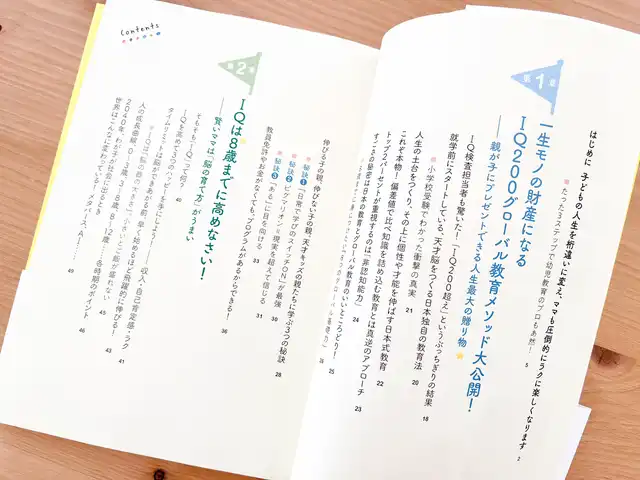 Contents
はじめに 子どもの人生を桁違いに変え、ママも圧倒的にラクに楽しくなります 2
たった3ステップで幼児教育のプロもあ然! 5
第1章
一生モノの財産になる
IQ200グローバル教育メソッド大公開!
──親が子にプレゼントできる人生最大の贈り物
IQ検査担当者も驚いた!「IQ200超え」というぶっちぎりの結果 18
就学前にスタートしている、天才脳をつくる日本独自の教育法 20
小学校受験でわかった衝撃の真実 21
人生の土台をつくり、その上に個性や才能を伸ばす日本式教育 22
これぞ本物! 偏差値で比べ知識を詰め込む教育とは真逆のアプローチ 23
トップ2パーセントが重視するのは「非認知能力」 24
すごさの秘密は日本の教育とグローバル教育のいいところどり!
伸びる子の親、伸びない子の親、天才キッズの親たちに学ぶ3つの秘訣 28
秘訣1「日常で学びのスイッチON」が最強 30
秘訣2 ピグマリオン=現実を超えて信じる 31
秘訣3「ある」に目を向ける 33
教員免許やお金がなくても、プログラムがあるからできる! 36
第2章
IQは8歳までに高めなさい!
──賢いママは「脳の育て方」がうまい
そもそも「IQ」って何? 40
IQを高めて3つのハッピーを手にしよう──収入・自己肯定感・ラク 41
タイムリミットは脳ができあがる前、早く始めるほど飛躍的に伸びる! 43
人の成長曲線、0-3歳、3-8歳、8-12歳──各時期のポイント 46
2040年、わが子が社会に出るとき
世界はこんなに変わっている! メタバース、AI…… 49